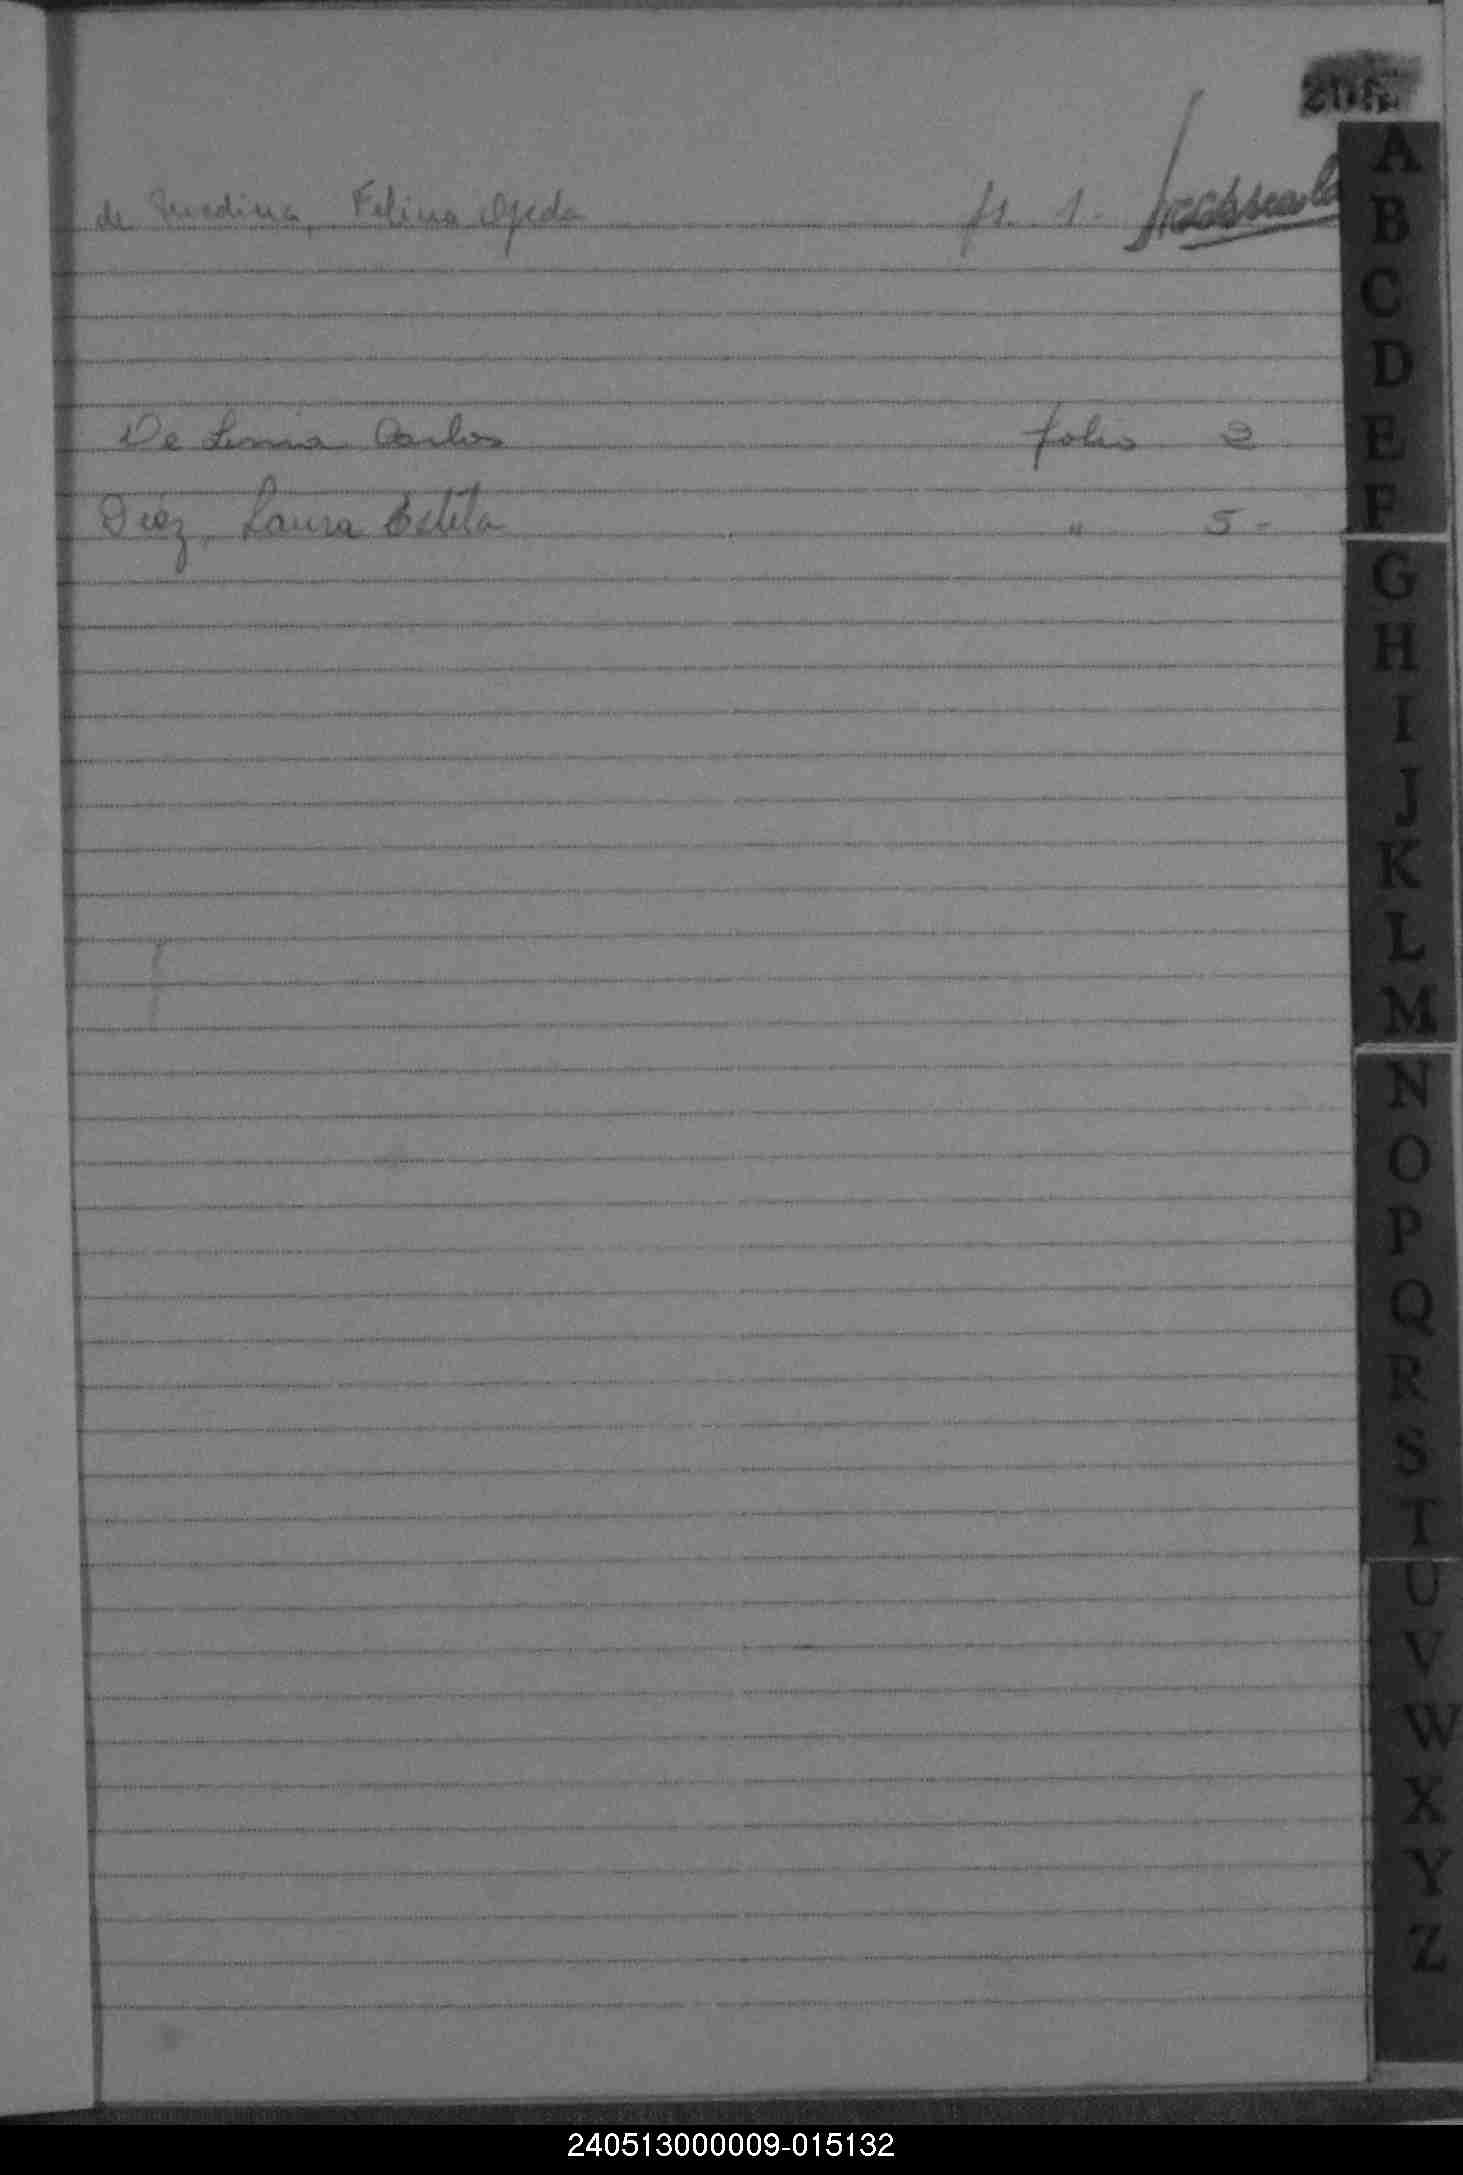 de Medina, Felina Ojeda fs. 1.-
De Lima Carlos folio 2
Diez, Laura Estela " 5-
A
B
C
D
E
F
G
H
I
J
K
L
M
N
O
P
Q
R
S
T
U
V
W
X
Y
Z
240513000009-015132